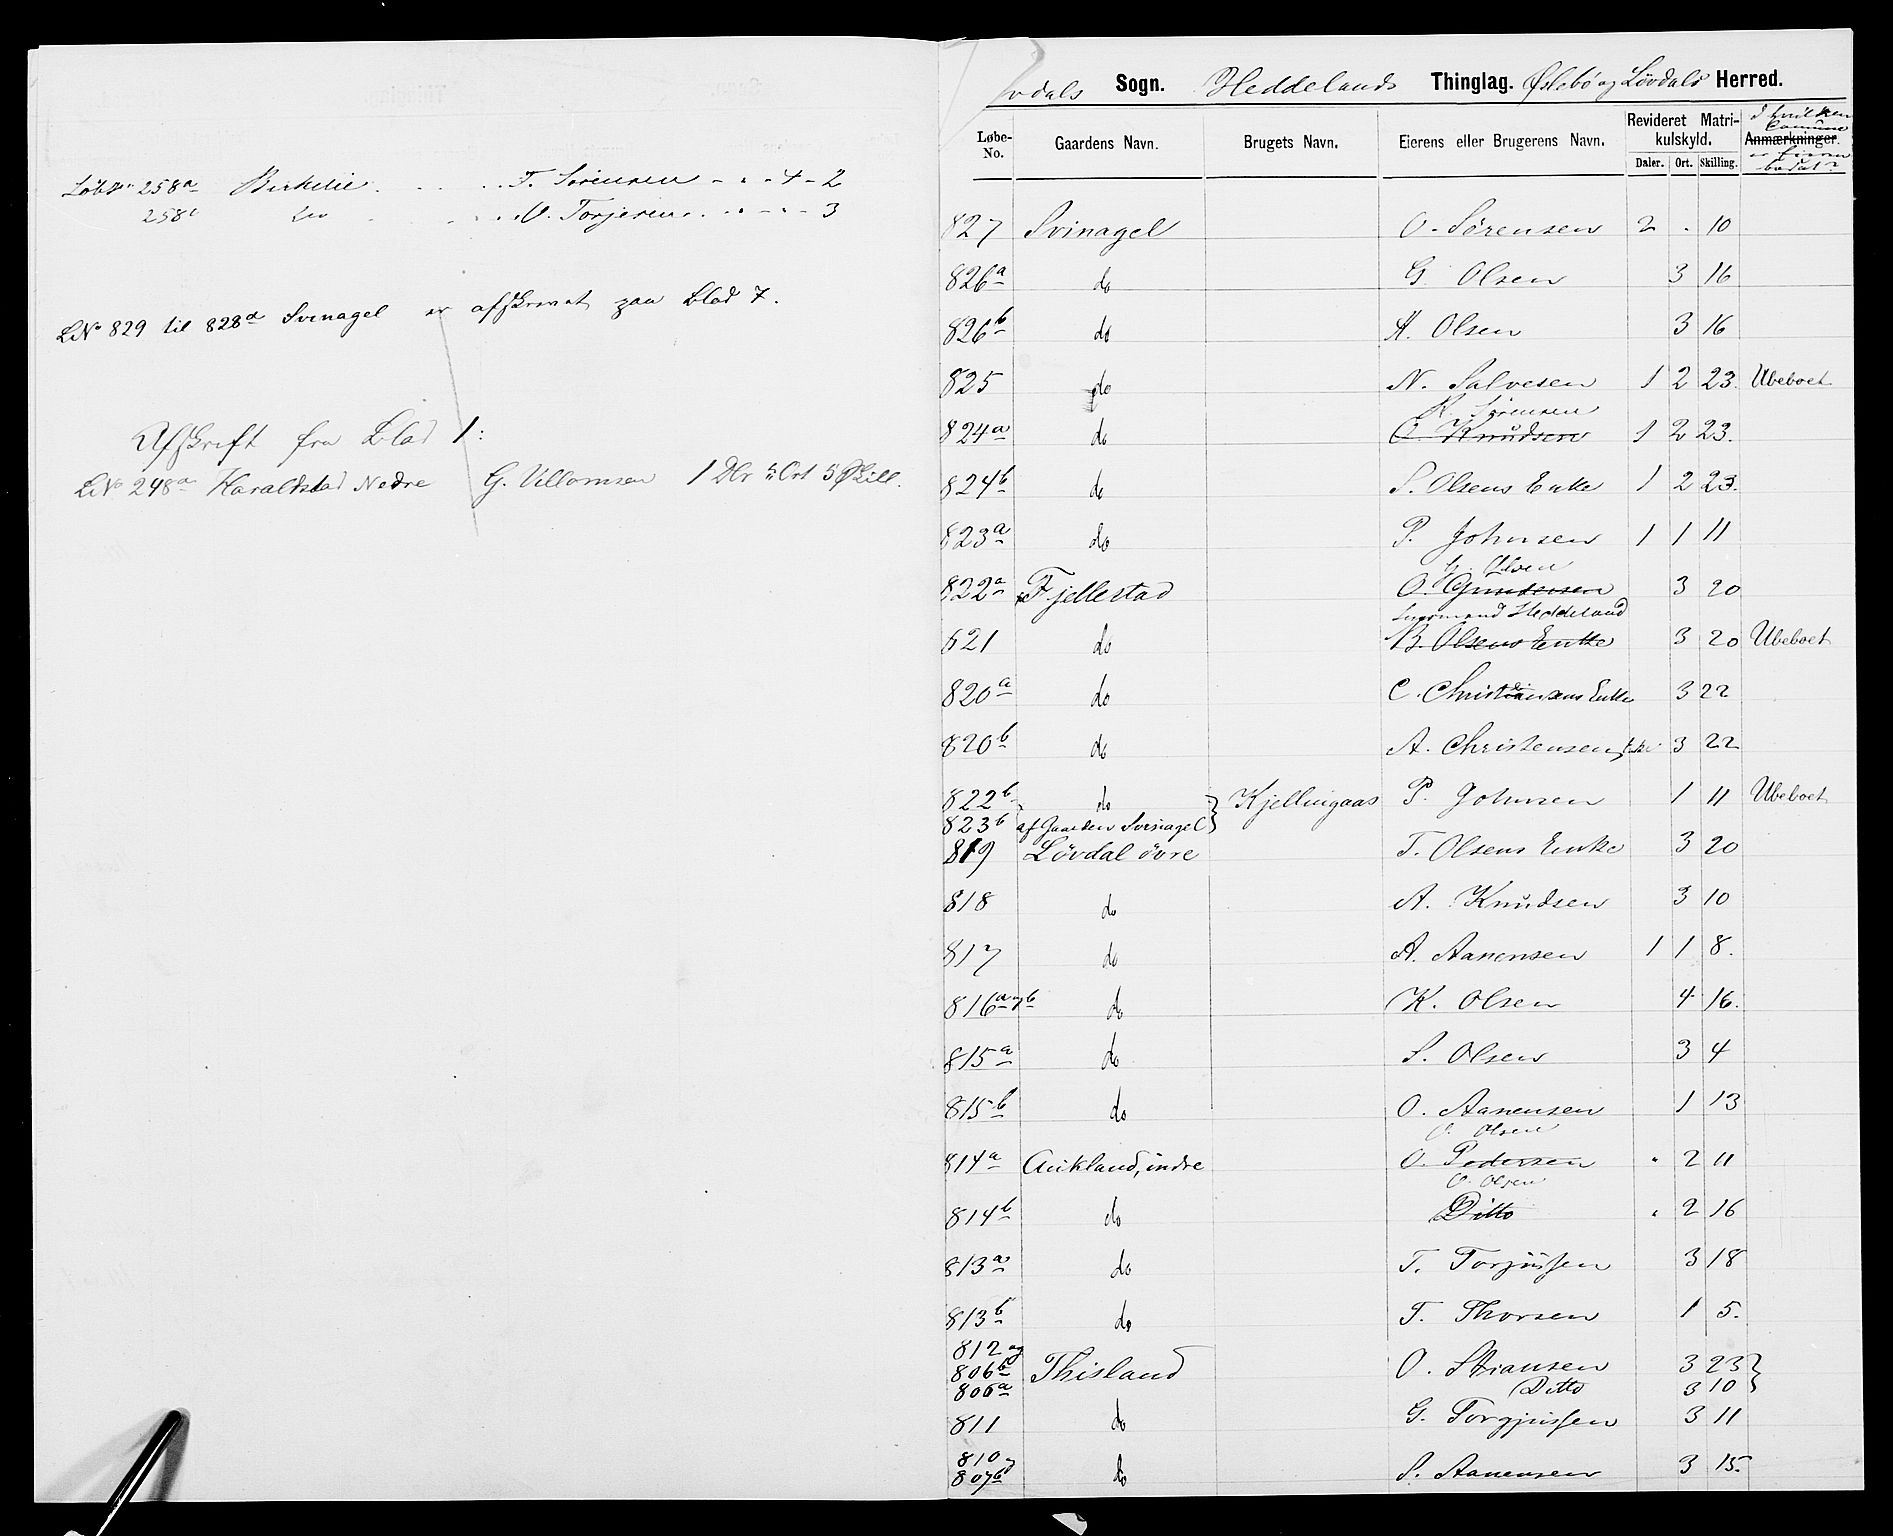 Löbe No 258a Birkelie . . . . . T. Sörensen - " - 4 - 2
258b do . . . . O. Torjesen . . " - " - 3
LNo 829 til 828a Svinagel er afskrevet paa Blad 7.
Afskrift fra Blad 1:
LNo 248a Haraldstad Nedre G. Villomsen 1 Dlr " Ort 5 Skill.
Sogn. Heddelands Thinglag. Øslebö og Lövdals Herred.
Løbe-No. Gaardens Navn. Brugets Navn. Eierens eller Brugerens Navn. Revideret Matrikulskyld. Daler. Ort. Skilling. Anmærkninger. I hvilken Commune er Eieren bosat?
827 Svinagel O. Sörensen 2 . 10
826a do G Olsen 3 16
826b do A. Olsen 3 16
825 do N. Salvesen 1 2 23. Ubeboet
Sörensen
824a do O. Knudsen 1 2 23.
824b do S. Olsens Enke 1 2 23.
823a do P. Johnsen 1 1 11
G. Olsen
822a Fjellestad O. Gundersen 3 20
Heddeland
821 do B. Olsens Enke 3 20 Ubeboet
820a do C. Christiansens Enke 3 22
820b do A. Christensens Enke 3 22
822b do Kjellingaas P. Johnsen 1 11 Ubeboet
823b af Gaarden Svinagel
819 Lövdal övre T. Olsens Enke 3 20
818 do A. Knudsen 3 10
817 do A. Aanensen 1 1 8.
816a og b do K. Olsen 4 16.
815a do S. Olsen 3 4
815b do O. Aanensen 1 13
O. Olsen
814a Aukland, indre O. Pedersen " 2 11
O. Olsen
814b do Ditto " 2 16
813a do T. Torjussen 3 18
813b do T. Thorsen 1 5.
812 og
806b Thisland O. Stiansen 3 23
806a Ditto 3 10
811 do G. Torgjussen 3 11
810 og
807b do S. Aanensen 3 15.